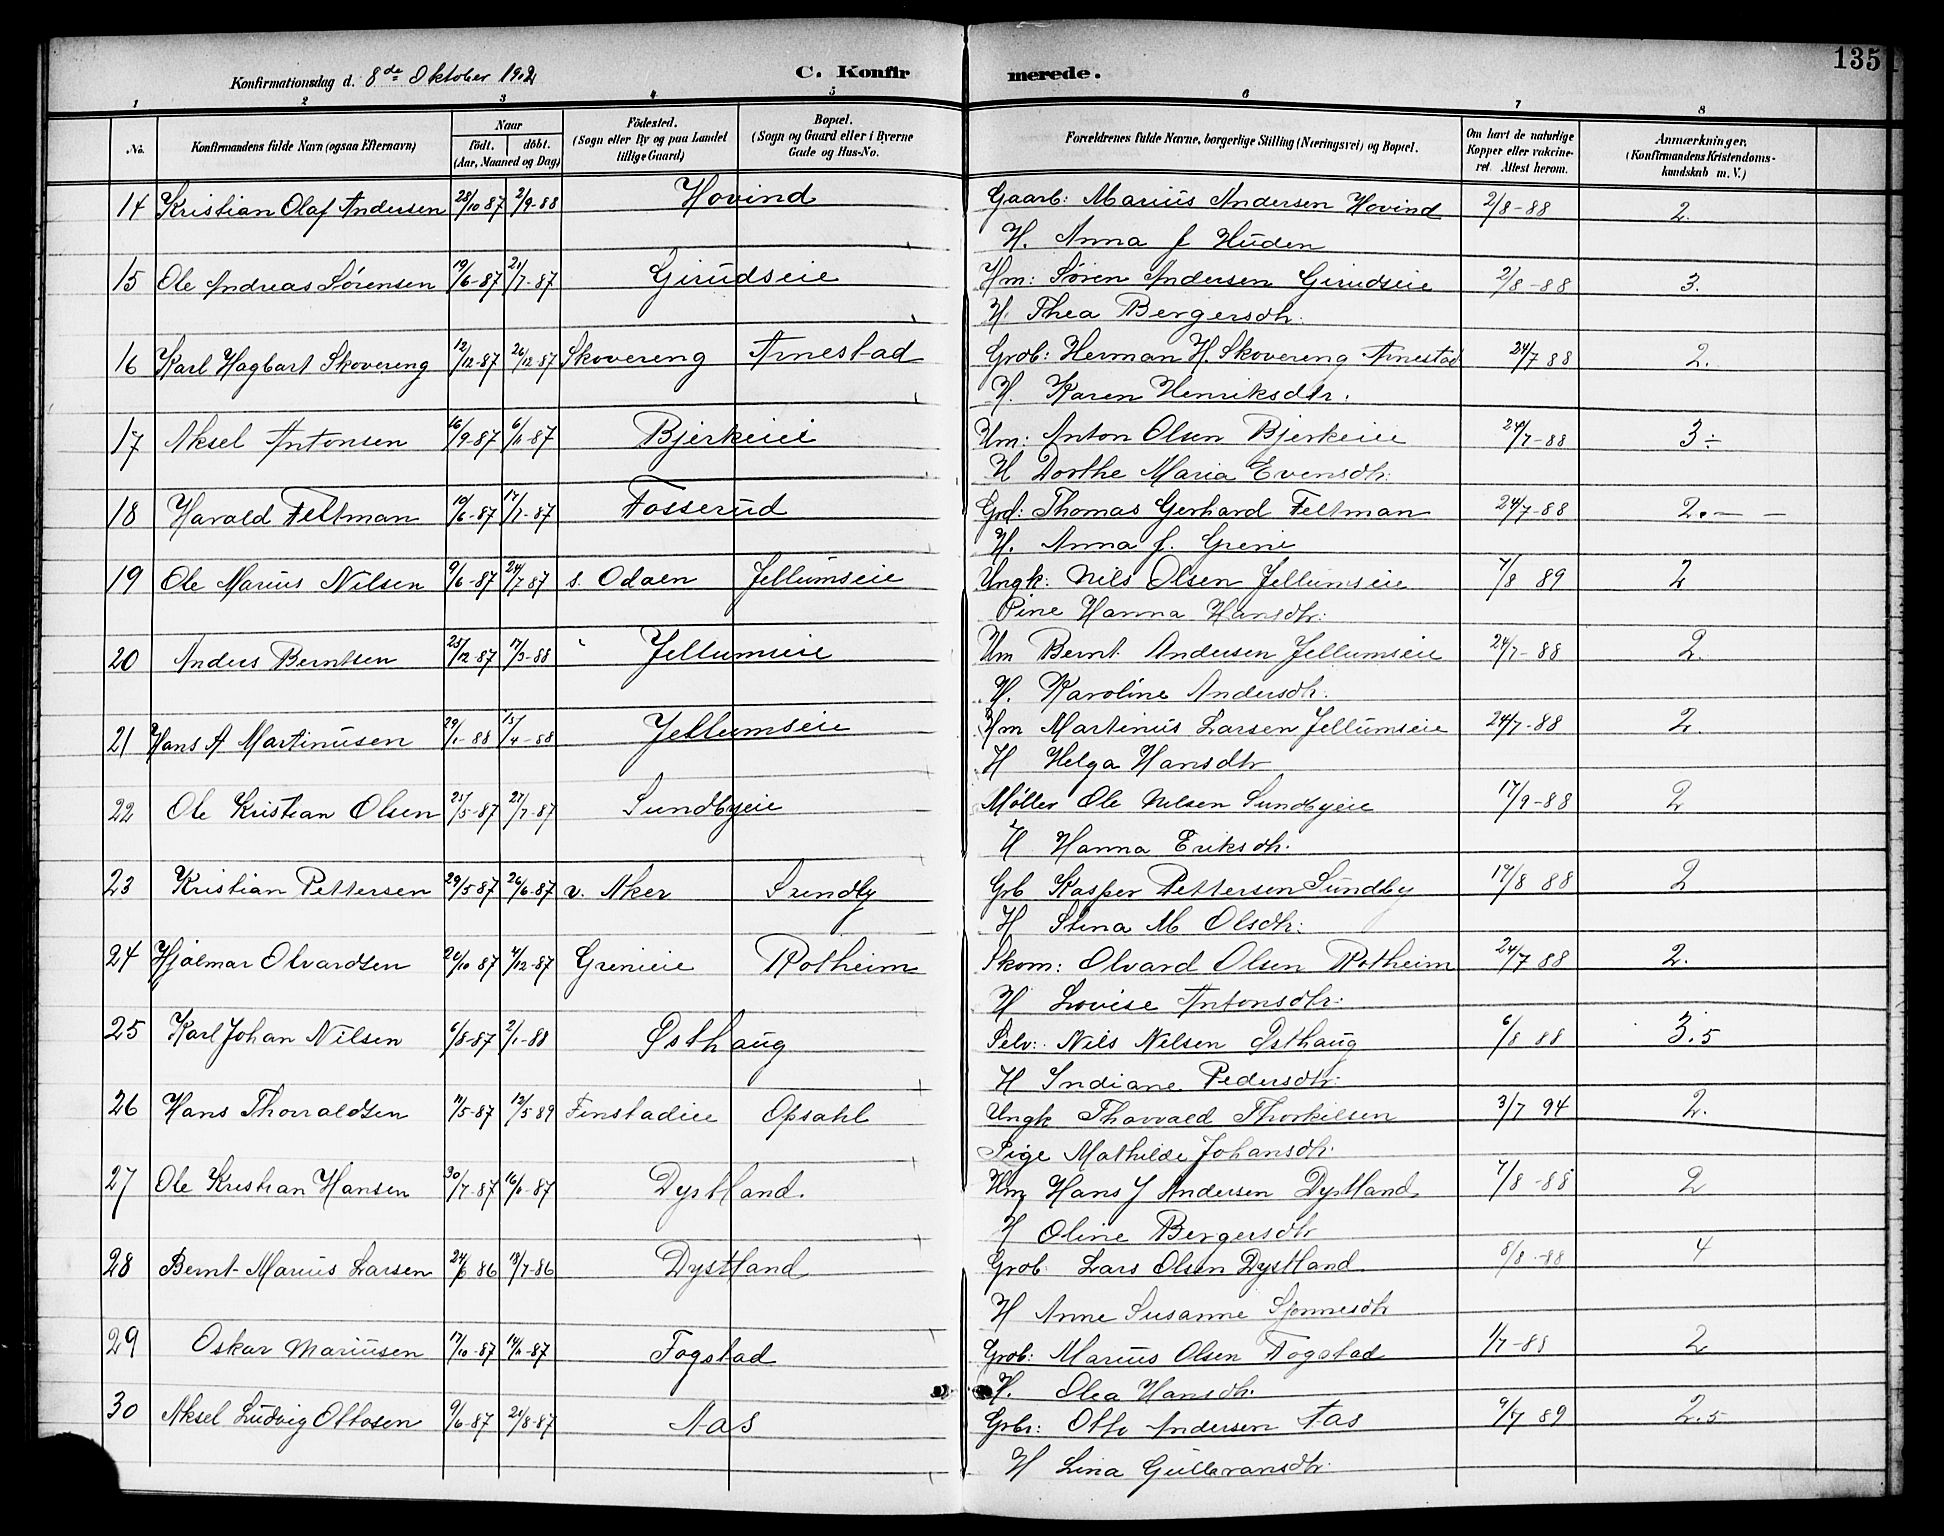 135
Konfirmationsdag d. 8de Oktober 1902 C. Konfirmerede.
1 2 3 4 5 6 7 8
No. Konfirmandens fulde Navn (ogsaa Efternavn) Naar födt. döbt. (Aar, Maaned og Dag) Födested. (Sogn eller By og paa Landet tillige Gaard) Bopæl. (Sogn og Gaard eller i Byerne Gade og Hus-No. Forældrenes fulde Navne, borgerlige Stilling (Næringsvei) og Bopæl. Om havt de naturlige Kopper eller vakcineret. Attest herom. Anmærkninger. (Konfirmandens Kristendomskundskab m. V.)
14 Kristian Olaf Andersen 28/10 87 2/9-88 Hovind Gaarb: Marius Andersen Hovind 2/8-88 2.
H. Anna f Huden
15 Ole Andreas Sørensen 19/6-87 21/7-87 Girudseie Hm: Søren Andersen Girudseie 2/8-88 3.
H. Thea Bergersdtr.
16 Karl Hagbart Skovereng 12/12-87 26/12-87 Skovereng Arnestad Grdb: Herman H. Skovereng Arnestad 24/7 88 2.
H. Karen Henriksdtr.
17 Aksel Antonsen 16/9-87 6/11-87 Bjerkeiei Hm: Anton Olsen Bjerkeiei 24/7-88 3÷
H Dorthe Maria Evensdtr.
18 Harald Feltman 19/6-87 17/7-87 Fosserud Grd: Thomas Gerhard Feltman 24/7-88 2.-
H. Anna f. Greni
19 Ole Marius Nilsen 9/6-87 24/7 87 s. Odalen Jellumseie Ungk: Nils Olsen Jellumseie 7/8 89 2
Pine Hanna Hansdtr.
20 Anders Berntsen 25/12-87 17/3-88 Jellumseie Hm Bernt Andersen Jellumseie 24/7-88 2.
H. Karoline Andersdtr.
21 Hans A Martinusen 29/1-88 15/4-88 Jellumseie Hm Martinus Larsen Jellumseie 24/7-88 2.
H Helga Hansdtr
22 Ole Kristian Olsen 25/5-87 27/7-87 Sundbyeie Møller Ole Nilsen Sundbyeie 17/9-88 2
H Hanna Eriksdtr.
23 Kristian Pettersen 29/5 87 26/6-87 v. Aker Sundby Grb Kasper Pettersen Sundby 17/8 88 2
H Stina M Olsdtr.
24 Hjalmar Olvardsen 20/10 87 4/12-87 Grenieie Rotheim Skom: Olvard Olsen Rotheim 24/7 88 2.
H Lovise Antonsdtr.
25 Karl Johan Nilsen 6/8-87 2/1-88 Østhaug Selv: Nils Nilsen Østhaug 6/8 88 3.5
H Indiane Pedersdtr.
26 Hans Thorvaldsen 11/5-87 12/5 89 Finstadeie Opsahl Ungk Thorvald Thorkilsen 3/7 94 2.
Pige Mathilde Johansdtr.
27 Ole Kristian Hansen 30/7-87 16/10-87 Dystland. Hm Hans J Andersen Dystland 7/8-88 2
H Oline Bergersdtr
28 Bernt Marius Larsen 24/6 86 18/7-86 Dystland Grdb: Lars Olsen Dystland 8/8-88 4
H Anne Susanne Sjønnesdtr
29 Oskar Mariusen 17/10-87 14/11-87 Fogstad Grdb: Marius Olsen Fogstad 1/7-88 2
H. Olea Hansdtr.
30 Aksel Ludvig Ottosen 9/6-87 21/8-87 Aas Grbr: Otto Andersen Aas 9/7 89 2.5
H Lina Gulbransdtr